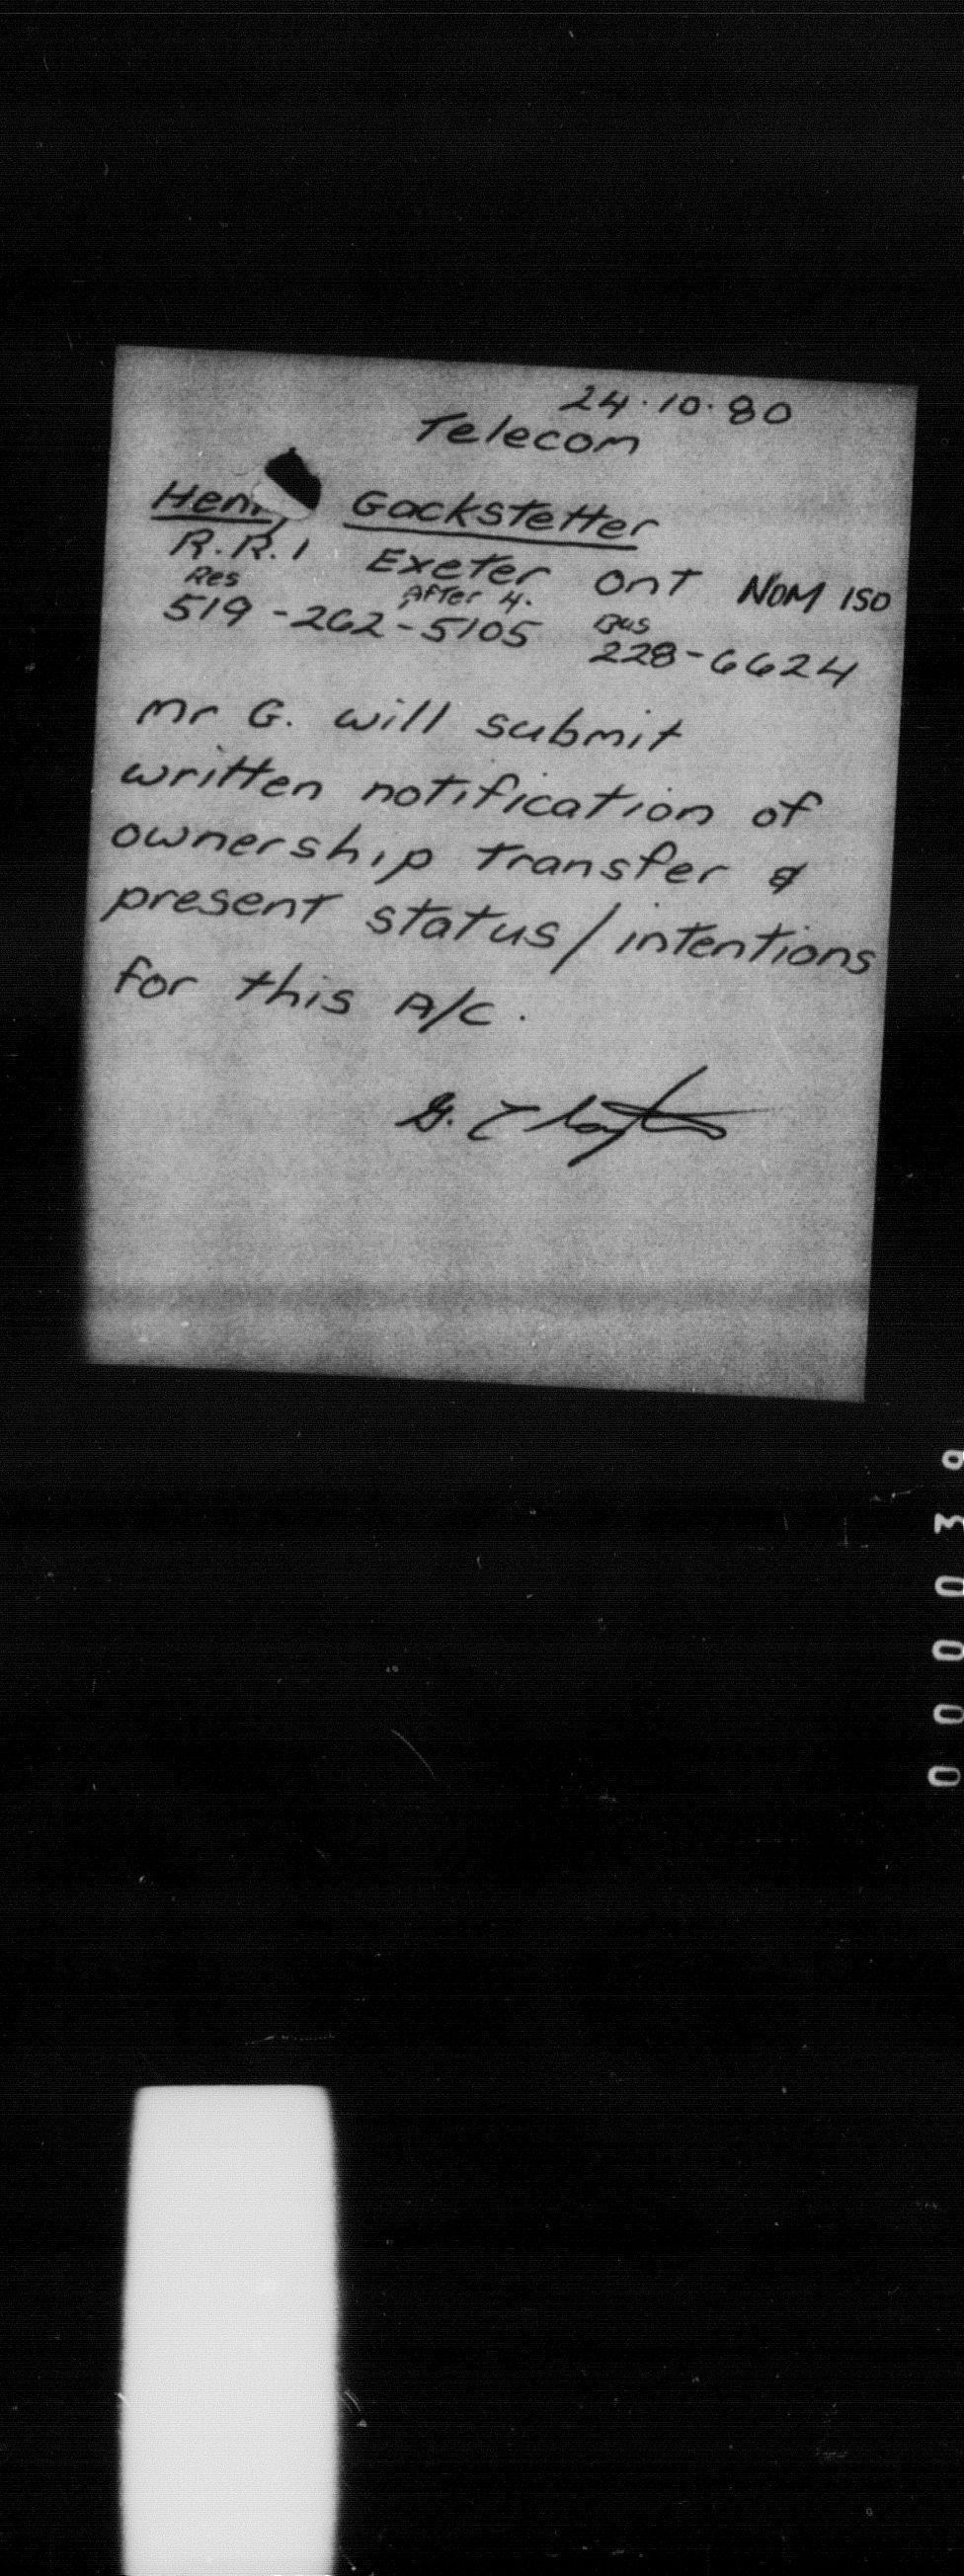 24.10.80
Telecom
Gackstetter
R.R.1 Exeter Ont NOM ISO
Res After 4. Bus
519-262-5105 228-6624
Mr G. will submit
written notification of
ownership transfer &
present status/intentions
for this A/C.
G.
000039